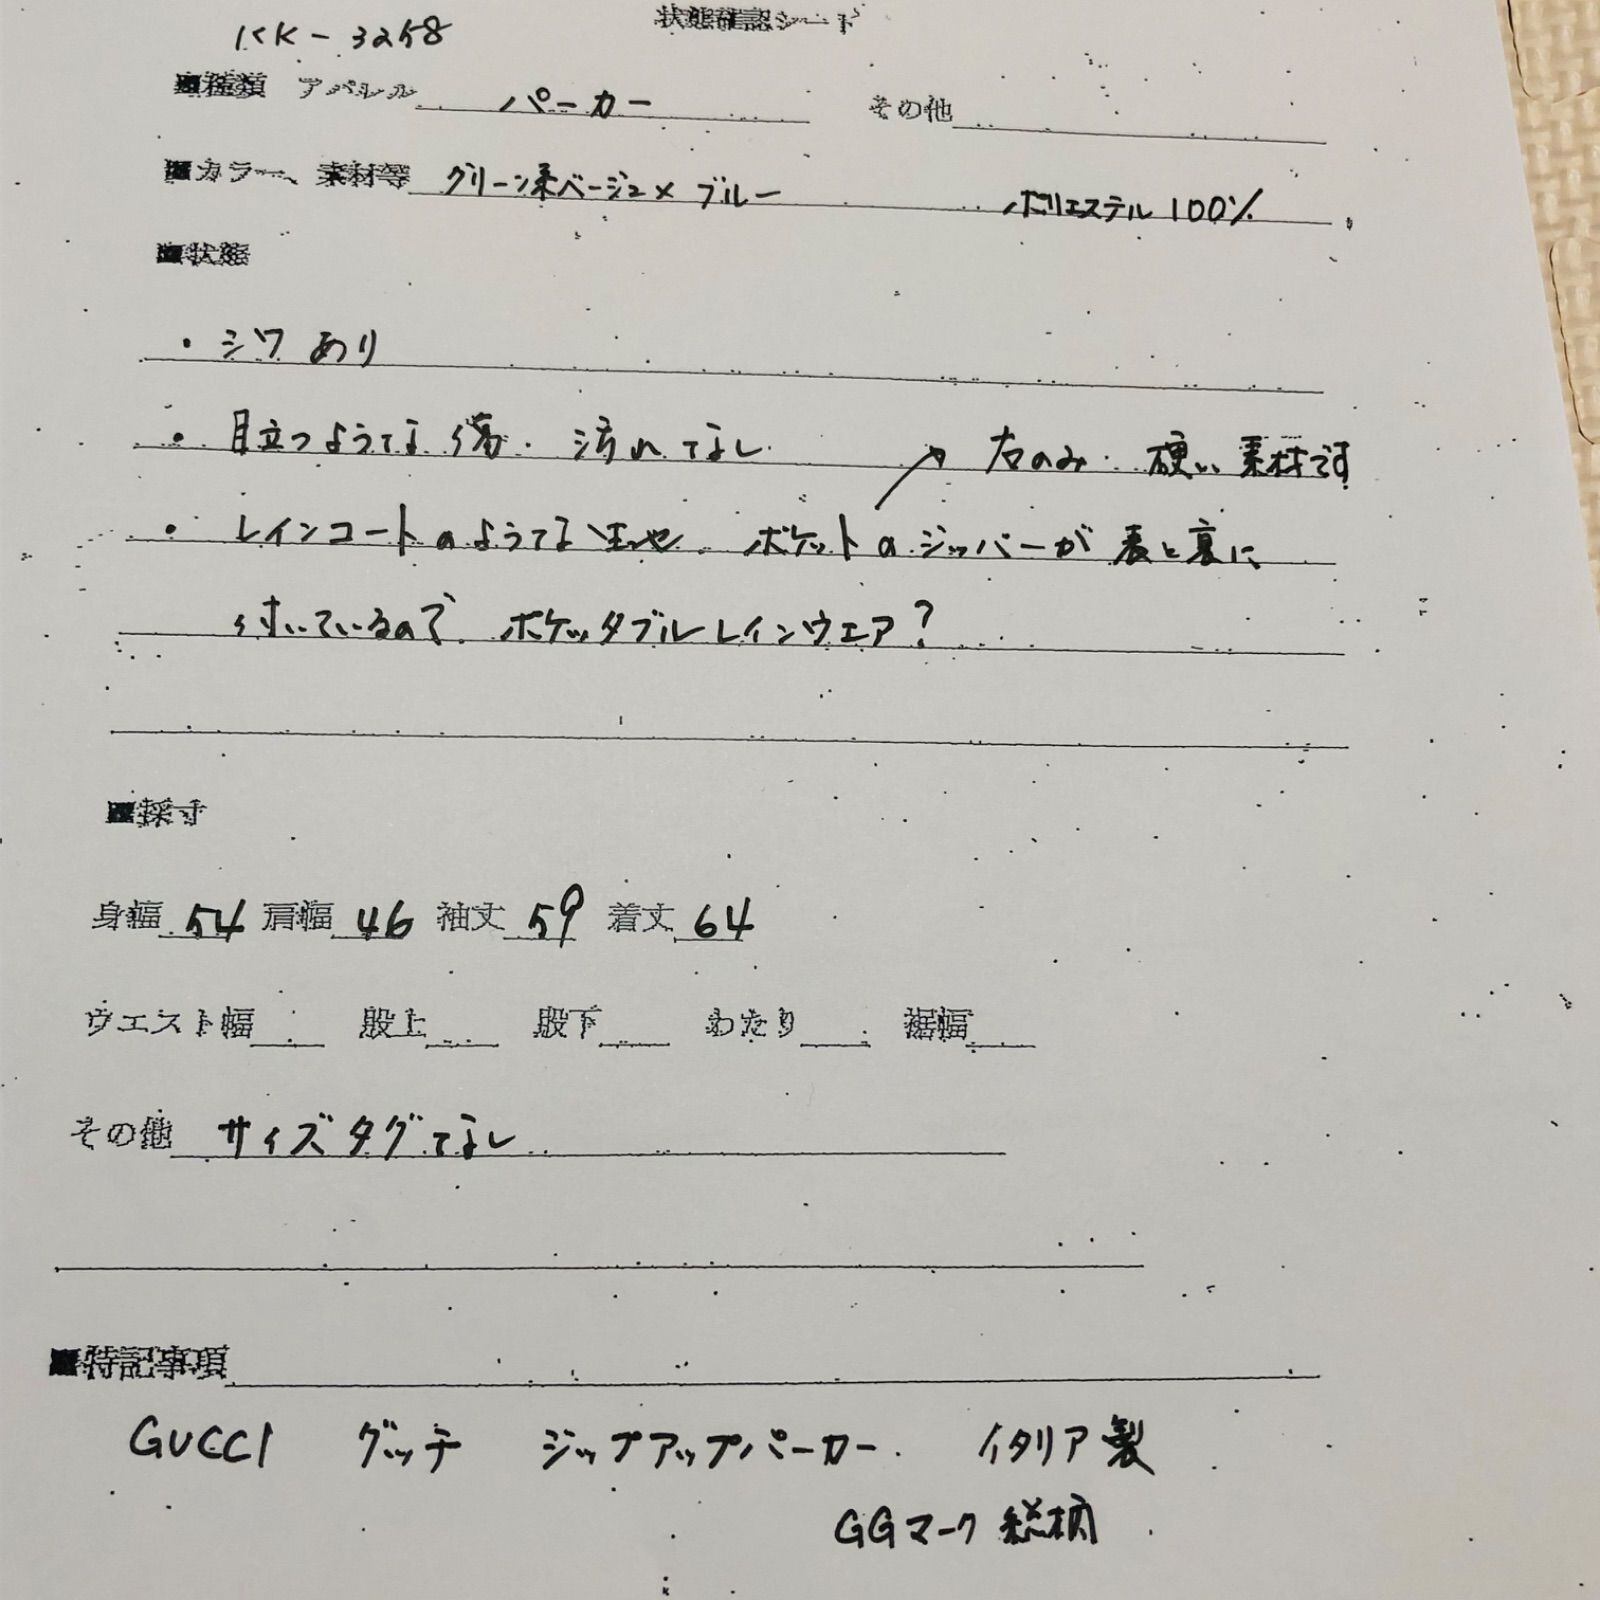 状態確認シート
KK-3258
■種類 アパレル パーカー その他
■カラー、素材等 グリーン系ベージュ×ブルー ポリエステル100%
■状態
・シワあり
・目立つような傷・汚れなし
→右のみ 硬い素材です
・レインコートのような生地 ポケットのジッパーが表と裏に
付いているので ポケッタブルレインウエア?
■採寸
身幅 54 肩幅 46 袖丈 59 着丈 64
ウエスト幅 股上 股下 わたり 裾幅
その他 サイズタグなし
■特記事項
GUCCI グッチ ジップアップパーカー イタリア製
GGマーク総柄